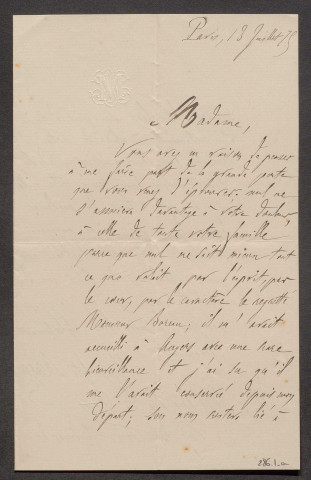 Paris, 13 Juillet 75
Madame,
Vous avez eu raison de penser
à me faire part de la grande perte
que vous venez d'éprouver, nul ne
s'associera davantage à votre douleur
à celle de toute votre famille
parce que nul ne sait mieux tout
ce que valait par l'esprit, par
le cœur, par le caractère le regretté
Monsieur ; il m'avait
accueilli à Angers avec une rare
bienveillance et j'ai su qu'il
me l'avait conservée depuis mon
départ ; son nom restera lié à